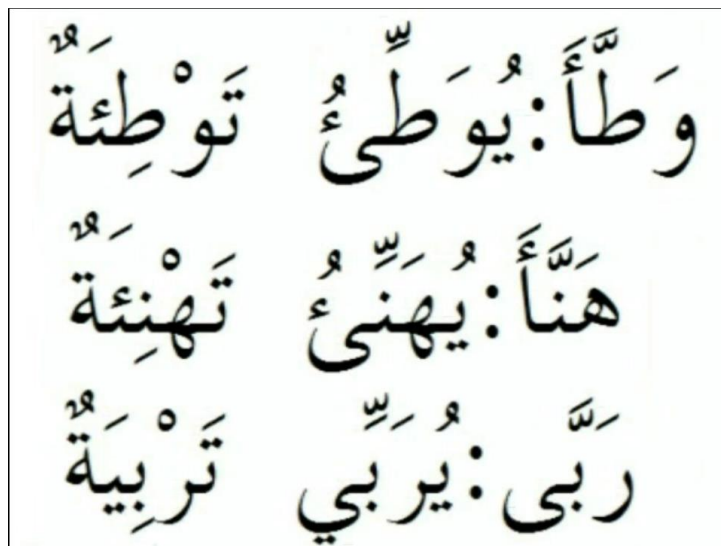 وَطَّأَ: يُوَطِّئُ تَوْطِئَةٌ
هَنَّأَ: يُهَنِّئُ تَهْنِئَةٌ
رَبَّى: يُرَبِّي تَرْبِيَةٌ